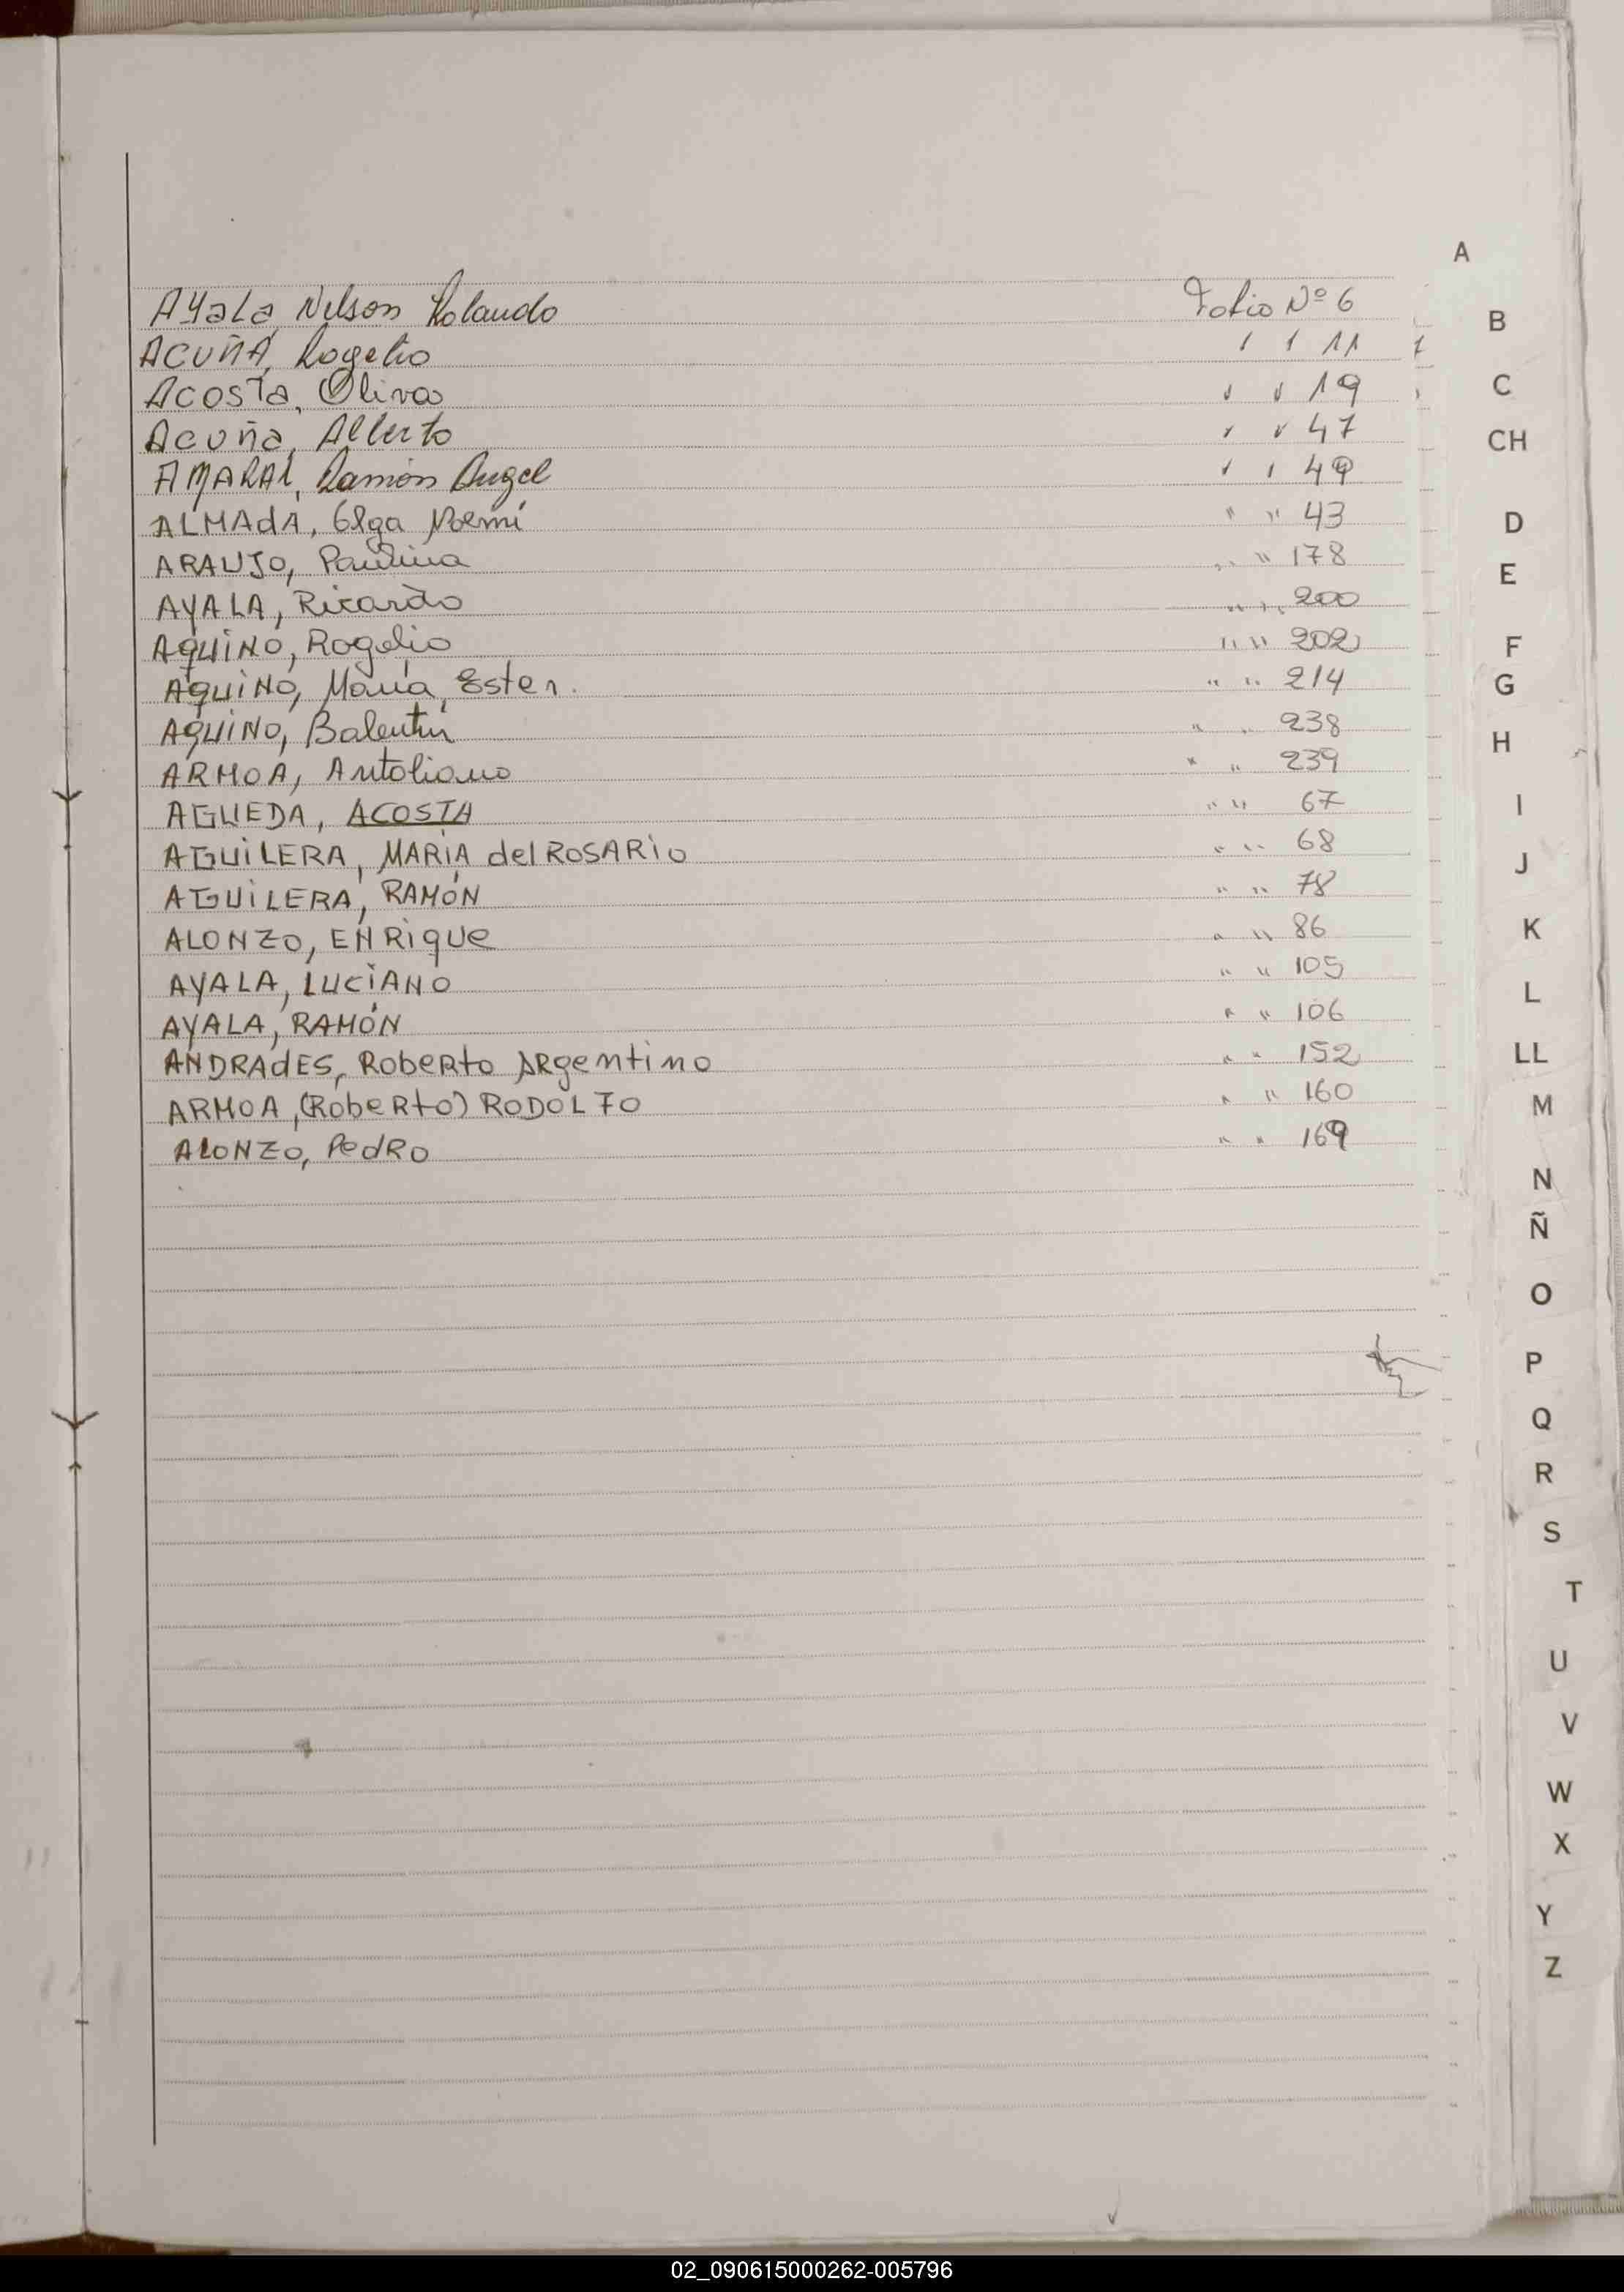 A
Ayala Nelson Rolando Folio Nº 6
B
ACUÑA, Rogelio " " 11
Acosta, Oliva " " 19
C
Acuña, Alberto " " 47
CH
AMARAL, Ramón Angel " " 49
ALMAdA, Olga Noemí " " 43
D
ARAUJO, Paulina " " 178
E
AYALA, Ricardo " " 200
AQUINO, Rogelio " " 202
F
AQUINO, María Ester. " " 214
G
AQUINO, Balentín " " 238
H
ARMOA, Antoliano " " 239
AGUEDA, ACOSTA " " 67
I
AGUILERA, MARÍA del ROSARIO " " 68
J
AGUILERA, RAMÓN " " 78
ALONZO, ENRIQUE " " 86
K
AYALA, LUCIANO " " 105
L
AYALA, RAMÓN " " 106
ANDRAdES, Roberto Argentino " " 152
LL
ARMOA, (Roberto) RODOLFO " " 160
M
ALONZO, PedRO " " 169
N
Ñ
O
P
Q
R
S
T
U
V
W
X
Y
Z
02_090615000262-005796